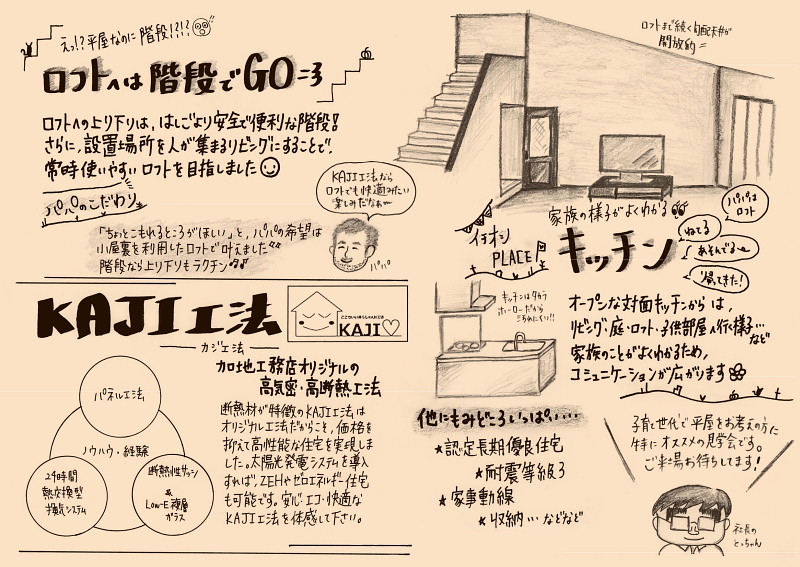 えっ!?平屋なのに階段!?!?
ロフトへは階段でGO=3
ロフトへの上り下りは、はしごより安全で便利な階段!
さらに、設置場所を人が集まるリビングにすることで、
常時使いやすいロフトを目指しました
パパのこだわり
KAJI工法なら
ロフトでも快適みたい
楽しみだなぁ〜
「ちょっとこもれるところがほしい」と、パパの希望は
小屋裏を利用したロフトで叶えました
階段なら上り下りもラクチン♪♪
パパ
KAJI工法
カジ工法
ここちいいおうちKAJI工法
KAJI♡
加地工務店オリジナルの
高気密・高断熱工法
断熱材が特徴のKAJI工法は
オリジナル工法だからこそ、価格を
抑えて高性能な住宅を実現しま
した。太陽光発電システムを導入
すれば、ZEHやゼロエネルギー住宅
も可能です。安心・エコ・快適な
KAJI工法を体感して下さい。
パネル工法
ノウハウ・経験
24時間
熱交換型
換気システム
断熱性サッシ
&
Low-E複層
ガラス
ロフトまで続く勾配天井が
開放的=
イチオシ
PLACE!
家族の様子がよくわかる
キッチン
パパは
ロフト
ねてる
あそんでる〜
帰ってきた!
キッチンはタカラ
ホーローだから
よごれにくい!!
オープンな対面キッチンからは、
リビング・庭・ロフト・子供部屋へ行く様子…など
家族のことがよくわかるため、
コミュニケーションが広がります
他にもみどころいっぱい・・・・
★認定長期優良住宅
★耐震等級3
★家事動線
★収納…などなど
子育て世代で平屋をお考えの方に
特にオススメの見学会です。
ご来場お待ちしてます!
社長の
とっちゃん